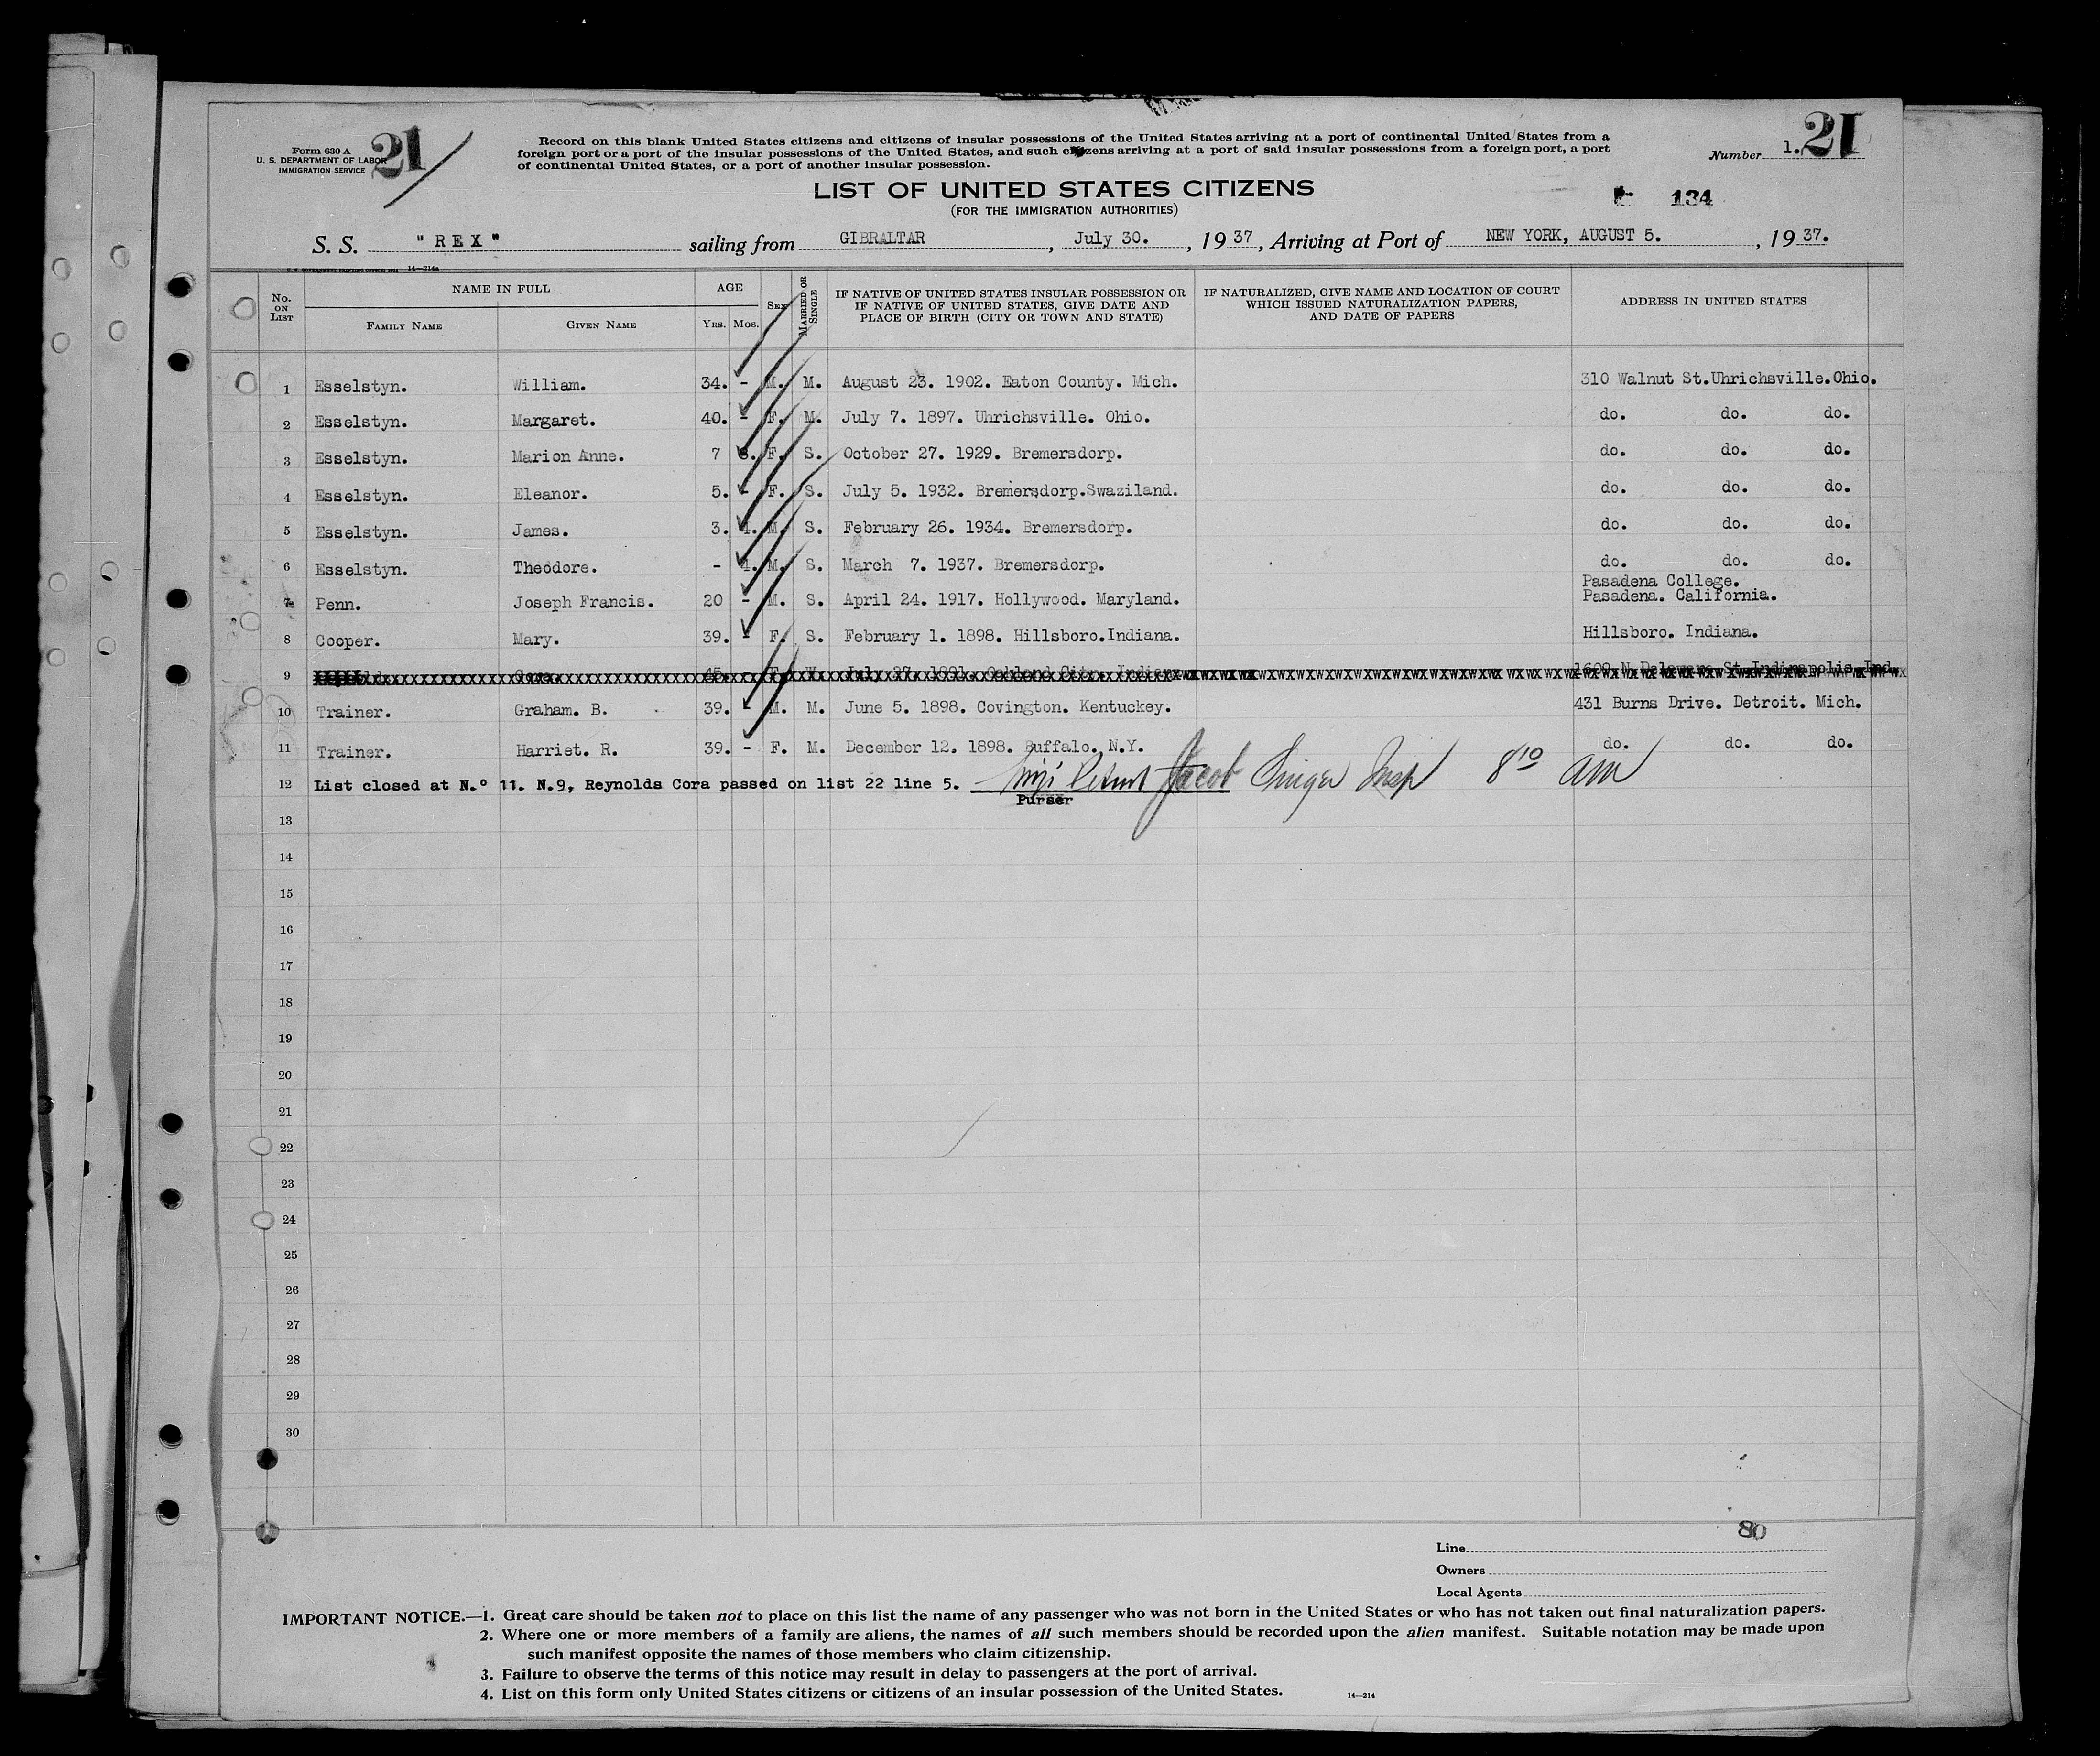 Form 630 A
U. S. DEPARTMENT OF LABOR
IMMIGRATION SERVICE
21
Record on this blank United States citizens and citizens of insular possessions of the United States arriving at a port of continental United States from a
foreign port or a port of the insular possessions of the United States, and such citizens arriving at a port of said insular possessions from a foreign port, a port
of continental United States, or a port of another insular possession.
Number 1. 21
LIST OF UNITED STATES CITIZENS
(FOR THE IMMIGRATION AUTHORITIES)
134
S. S. "REX" sailing from GIBRALTAR, July 30., 1937, Arriving at Port of NEW YORK, AUGUST 5., 1937.
14—214a
No. ON LIST NAME IN FULL FAMILY NAME GIVEN NAME AGE YRS. MOS. SEX MARRIED OR SINGLE IF NATIVE OF UNITED STATES INSULAR POSSESSION OR IF NATIVE OF UNITED STATES, GIVE DATE AND PLACE OF BIRTH (CITY OR TOWN AND STATE) IF NATURALIZED, GIVE NAME AND LOCATION OF COURT WHICH ISSUED NATURALIZATION PAPERS, AND DATE OF PAPERS ADDRESS IN UNITED STATES
1 Esselstyn. William. 34. - M. M. August 23. 1902. Eaton County. Mich. 310 Walnut St.Uhrichsville.Ohio.
2 Esselstyn. Margaret. 40. - F. M. July 7. 1897. Uhrichsville. Ohio. do. do. do.
3 Esselstyn. Marion Anne. 7 F. S. October 27. 1929. Bremersdorp. do. do. do.
4 Esselstyn. Eleanor. 5. - F. S. July 5. 1932. Bremersdorp.Swaziland. do. do. do.
5 Esselstyn. James. 3. 4. M. S. February 26. 1934. Bremersdorp. do. do. do.
6 Esselstyn. Theodore. - 4. M. S. March 7. 1937. Bremersdorp. do. do. do.
7 Penn. Joseph Francis. 20 - M. S. April 24. 1917. Hollywood. Maryland. Pasadena College.
Pasadena. California.
8 Cooper. Mary. 39. - F. S. February 1. 1898. Hillsboro.Indiana. Hillsboro. Indiana.
9 Cora. 45. F. W. July 27. 1891. Oakland City. Indiana 1609 N Delaware St.Indianapolis.Ind.
10 Trainer. Graham. B. 39. - M. M. June 5. 1898. Covington. Kentuckey. 431 Burns Drive. Detroit. Mich.
11 Trainer. Harriet. R. 39. - F. M. December 12. 1898. Buffalo. N.Y. do. do. do.
12 List closed at N.º 11. N.9, Reynolds Cora passed on list 22 line 5. Jacob Singer Insp 8 10 am
Purser
13
14
15
16
17
18
19
20
21
22
23
24
25
26
27
28
29
30
80
Line
Owners
Local Agents
IMPORTANT NOTICE.—1. Great care should be taken not to place on this list the name of any passenger who was not born in the United States or who has not taken out final naturalization papers.
2. Where one or more members of a family are aliens, the names of all such members should be recorded upon the alien manifest. Suitable notation may be made upon
such manifest opposite the names of those members who claim citizenship.
3. Failure to observe the terms of this notice may result in delay to passengers at the port of arrival.
4. List on this form only United States citizens or citizens of an insular possession of the United States.
14—214